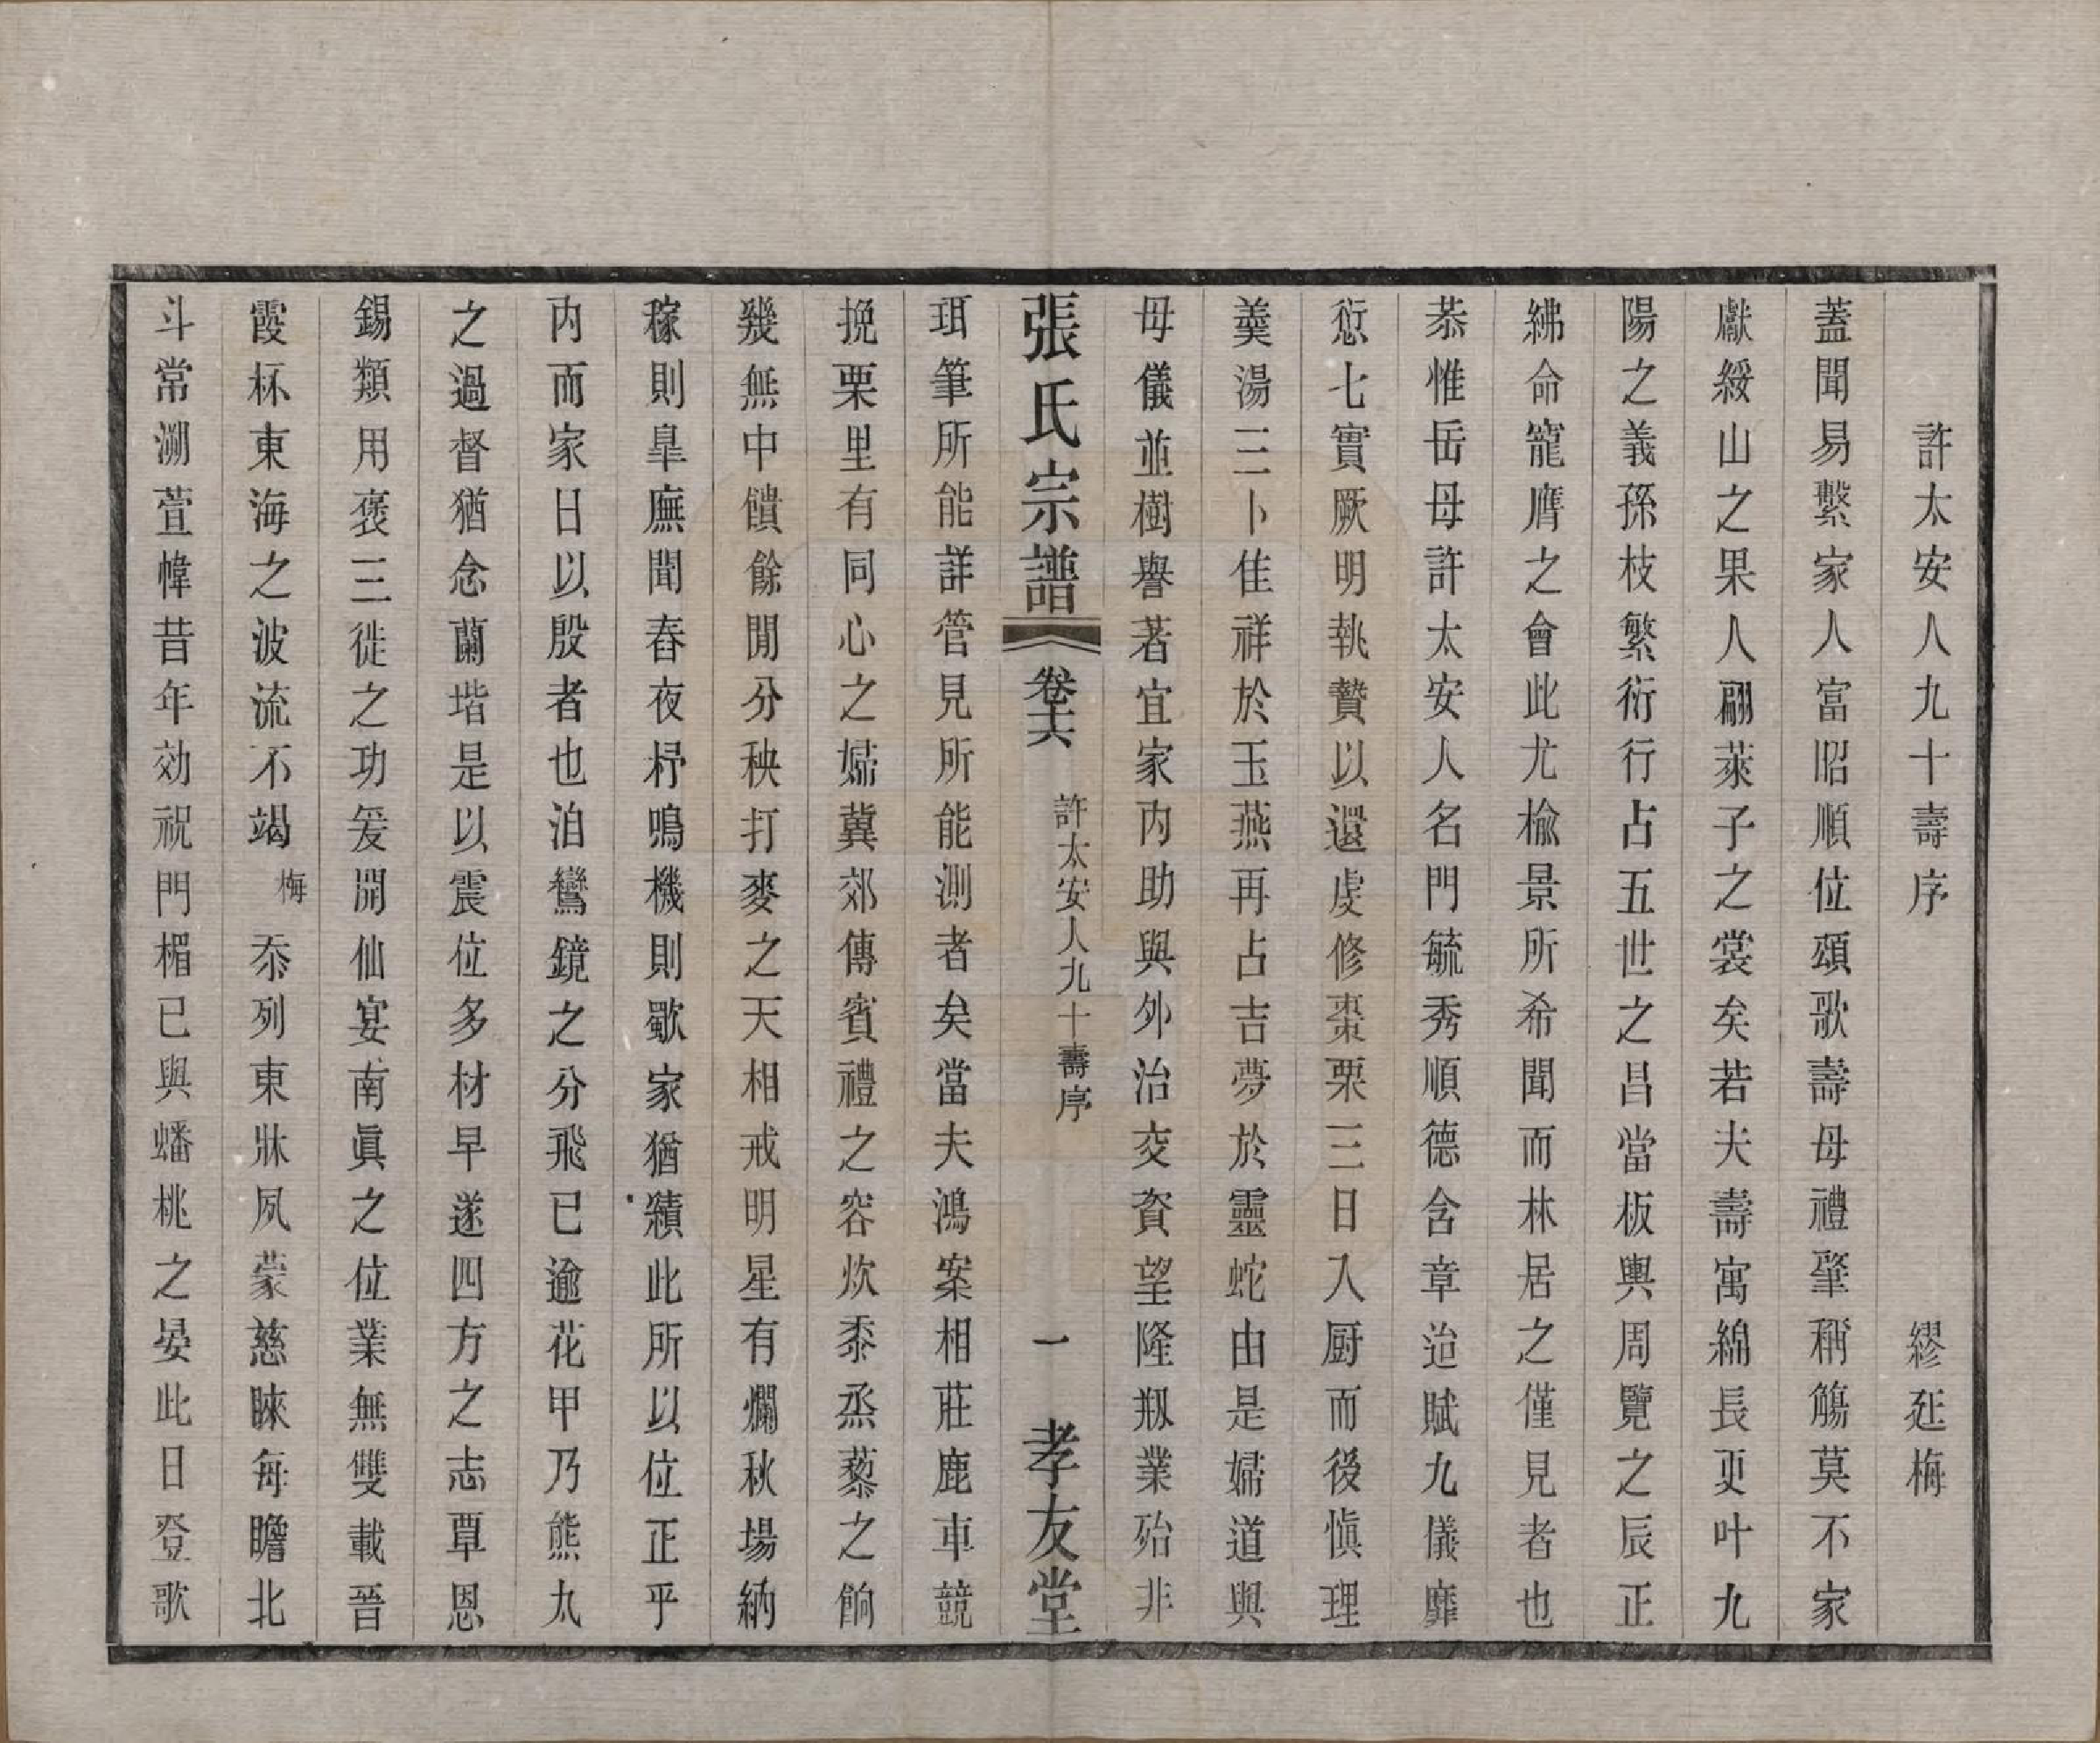 許太安人九十壽序　繆延梅
蓋聞易繫家人富昭順位頌歌壽母禮肇稱觴莫不家
獻綏山之果人翩萊子之裳矣若夫壽寓綿長更叶九
陽之義孫枝繁衍行占五世之昌當板輿周覽之辰正
紼命寵膺之會此尤榆景所希聞而林居之僅見者也
恭惟岳母許太安人名門毓秀順德含章迨賦九儀靡
愆七實厥明執贄以還虔修棗栗三日入厨而後慎理
羹湯三卜佳祥於玉燕再占吉夢於靈蛇由是婦道與
母儀並樹譽著宜家内助與外治交資望隆刱業殆非
張氏宗譜　卷十六　許太安人九十壽序　一　孝友堂
珥筆所能詳管見所能測者矣當夫鴻案相莊鹿車競
挽栗里有同心之嬬冀郊傳賓禮之容炊黍烝藜之餉
幾無中饋餘閒分秧打麥之天相戒明星有爛秋場納
稼則皐廡聞舂夜杼鳴機則歜家猶績此所以位正乎
内而家日以殷者也洎鸞鏡之分飛已逾花甲乃熊丸
之過督猶念蘭堦是以震位多材早遂四方之志覃恩
錫類用褒三徙之功爰開仙宴南眞之位業無雙載晉
霞杯東海之波流不竭梅忝列東牀夙蒙慈睞每瞻北
斗常溯萱幃昔年効祝門楣已與蟠桃之晏此日登歌